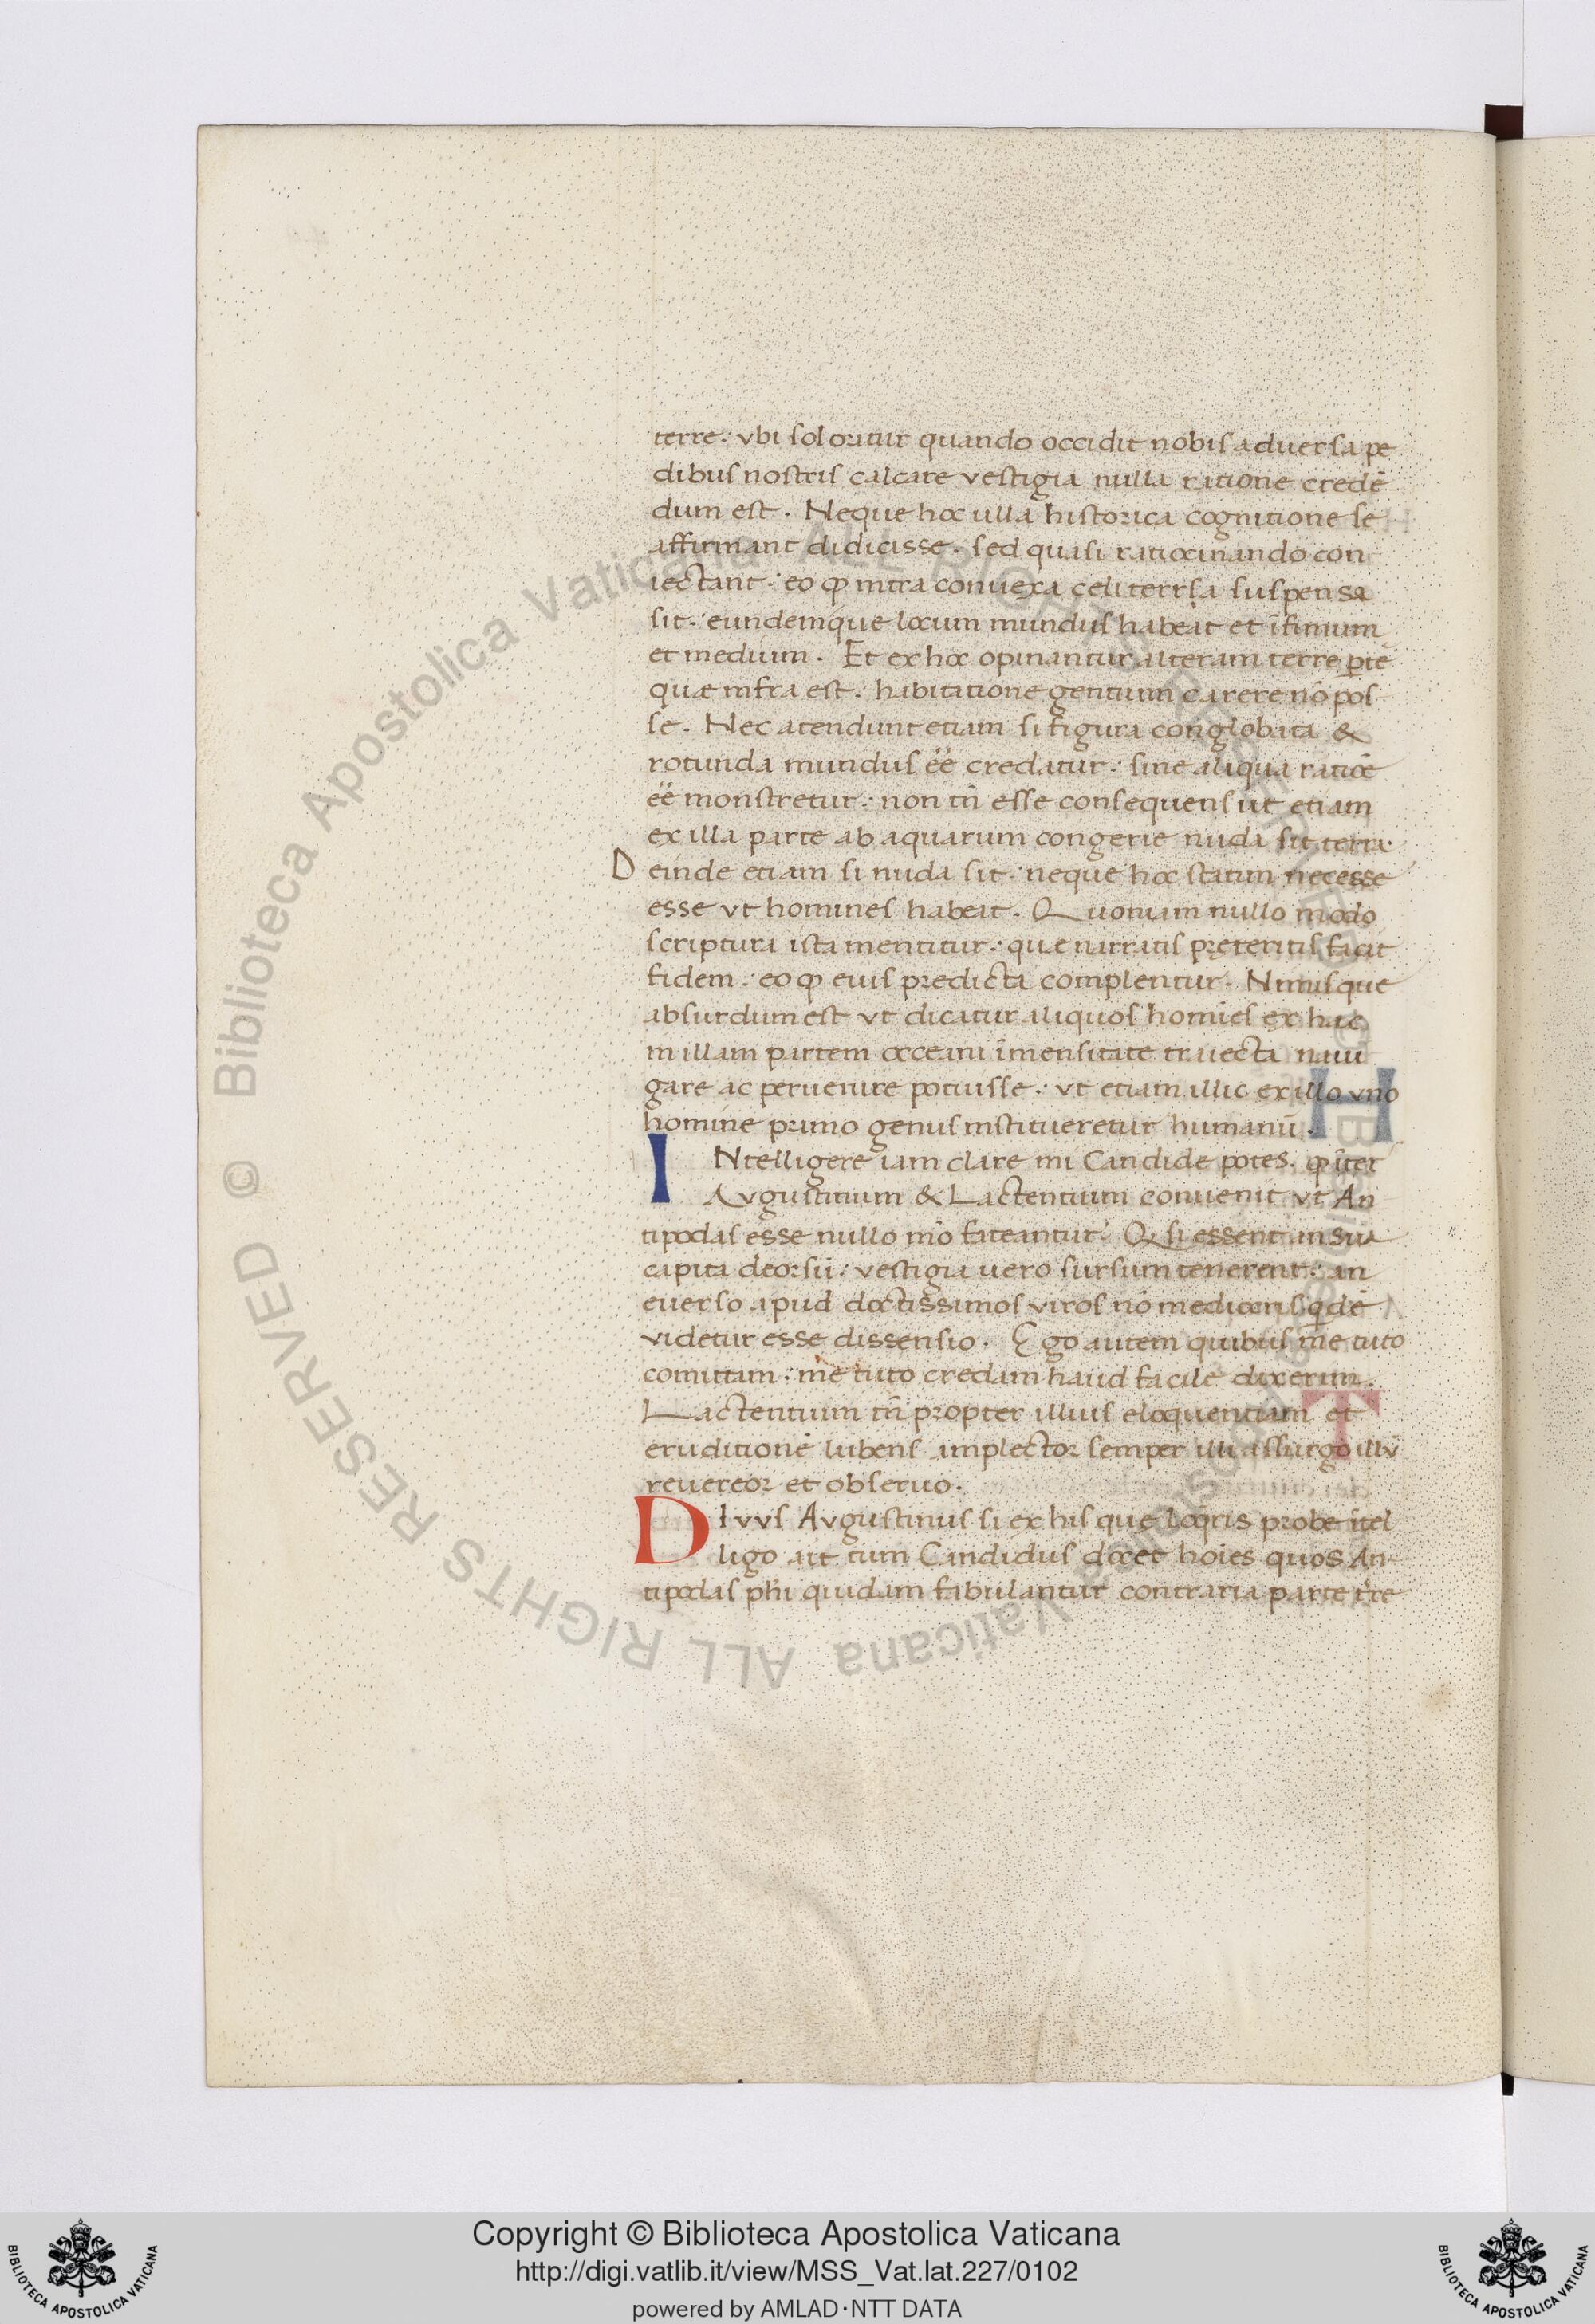 terre. vbi sol oritur quando occidit nobis aduersa pe
dibus nostris calcare vestigia nulla ratione credē
dum est. Neque hoc ulla historica cognitione se
affirmant didicisse. sed quasi ratiocinando con
iectant. eo ꝙ intra conuexa celi terrˢa suspensa
sit. eundemque locum mundus habeat et īfimum
et medium. Et ex hoc opinantur alteram terre ꝑtē
quæ infra est. habitatione gentium carere nō pos
se. Nec atendunt etiam si figura conglobata &
rotunda mundus eē credatur. sine aliqua ratiōe
eē monstretur. non tn̄ esse consequens ut etiam
ex illa parte ab aquarum congerie nuda sit terra.
Deinde etiam si nuda sit. neque hoc statim necesse
esse vt homines habeat. Quoniam nullo modo
scriptura ista mentitur. que narratis pręteritis facit
fidem. eo ꝙ eius predicta complentur. Nimisque
absurdum est vt dicatur aliquos homīes ex hac
in illam partem occeani īmensitate traiecta naui
gare ac peruenire potuisse. vt etiam illic ex illo vno
homine primo genus institueretur humanū.
INtelligere iam clare mi Candide potes. ꝙ īter
Avgustinum & Lactentium conuenit vt An
tipodas esse nullo mō fateantur. Q si essent an sua
capita deorsū. vestigia uero sursum tenerent. an
euerso apud doctissimos viros nō mediocris qdē
videtur esse dissensio. Ego autem quibus me tuto
comittam. me tuto credam haud facile dixerim.
Lactentium tn̄ propter illius eloquentiam et
eruditionē lubens amplector semper illi assurgo illū
reuereor et obseruo.
DIvvs Avgustinus si ex his que loqris probe itel
ligo ait tum Candidus docet hoīes quos An-
tipodas phi quidam fabulantur contraria parte tr̄e
Copyright © Biblioteca Apostolica Vaticana
http://digi.vatlib.it/view/MSS_Vat.lat.227/0102
powered by AMLAD·NTT DATA
BIBLIOTECA APOSTOLICA VATICANA
BIBLIOTECA APOSTOLICA VATICANA
© Biblioteca Apostolica Vaticana ALL RIGHTS RESERVED © Biblioteca Apostolica Vaticana ALL RIGHTS RESERVED